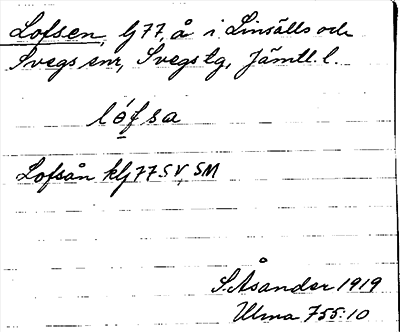 Lofsen, G77, å i Linsälls och
Svegs snr, Svegs tg, Jämtl. l.
lófsa
Lofsån kG77SV, SM
S. Åsander 1919
Ulma 755:10